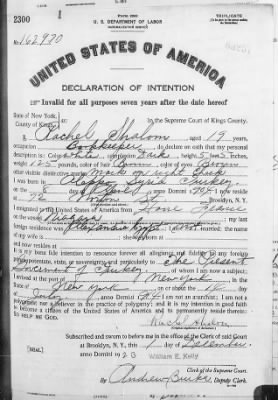 U. S. DEPARTMENT OF LABOR
TRIPLICATE
2300
No. 162970
UNITED STATES OF AMERICA
DECLARATION OF INTENTION
Invalid for all purposes seven years after the date hereof
State of New York,
County of Kings, In the Supreme Court of Kings County.
I, Rachel Shalom, aged 19 years,
occupation Bookkeeper, do declare on oath that my personal
description is: Color white, complexion Dark, height 5 feet inches,
weight 125 pounds, color of hair Brown, color of eyes Brown
other visible distinctive marks Mark on right
I was born in Aleppo Syria Turkey
on the day of, anno Domini; I now reside
at 72 St., Brooklyn, N. Y.
I emigrated to the United States of America from
on the vessel; my last
foreign residence was Alexandria Egypt; I am not married; the name
of my wife is; she was born at
and now resides at
It is my bona fide intention to renounce forever all allegiance and fidelity to any foreign
prince, potentate, state, or sovereignty, and particularly to The Present
Government of Turkey, of whom I am now a subject;
I arrived at the port of New York, in the
State of New York, on or about the 14 day
of July, anno Domini; I am not an anarchist; I am not a
polygamist nor a believer in the practice of polygamy; and it is my intention in good faith
to become a citizen of the United States of America and to permanently reside therein:
SO HELP ME GOD.
Rachel Shalom
Subscribed and sworn to before me in the office of the Clerk of said Court
at Brooklyn, N. Y., this day of December
anno Domini 19 23
[SEAL] William E. Kelly
Clerk of the Supreme Court.
By Andrew Burke, Deputy Clerk.